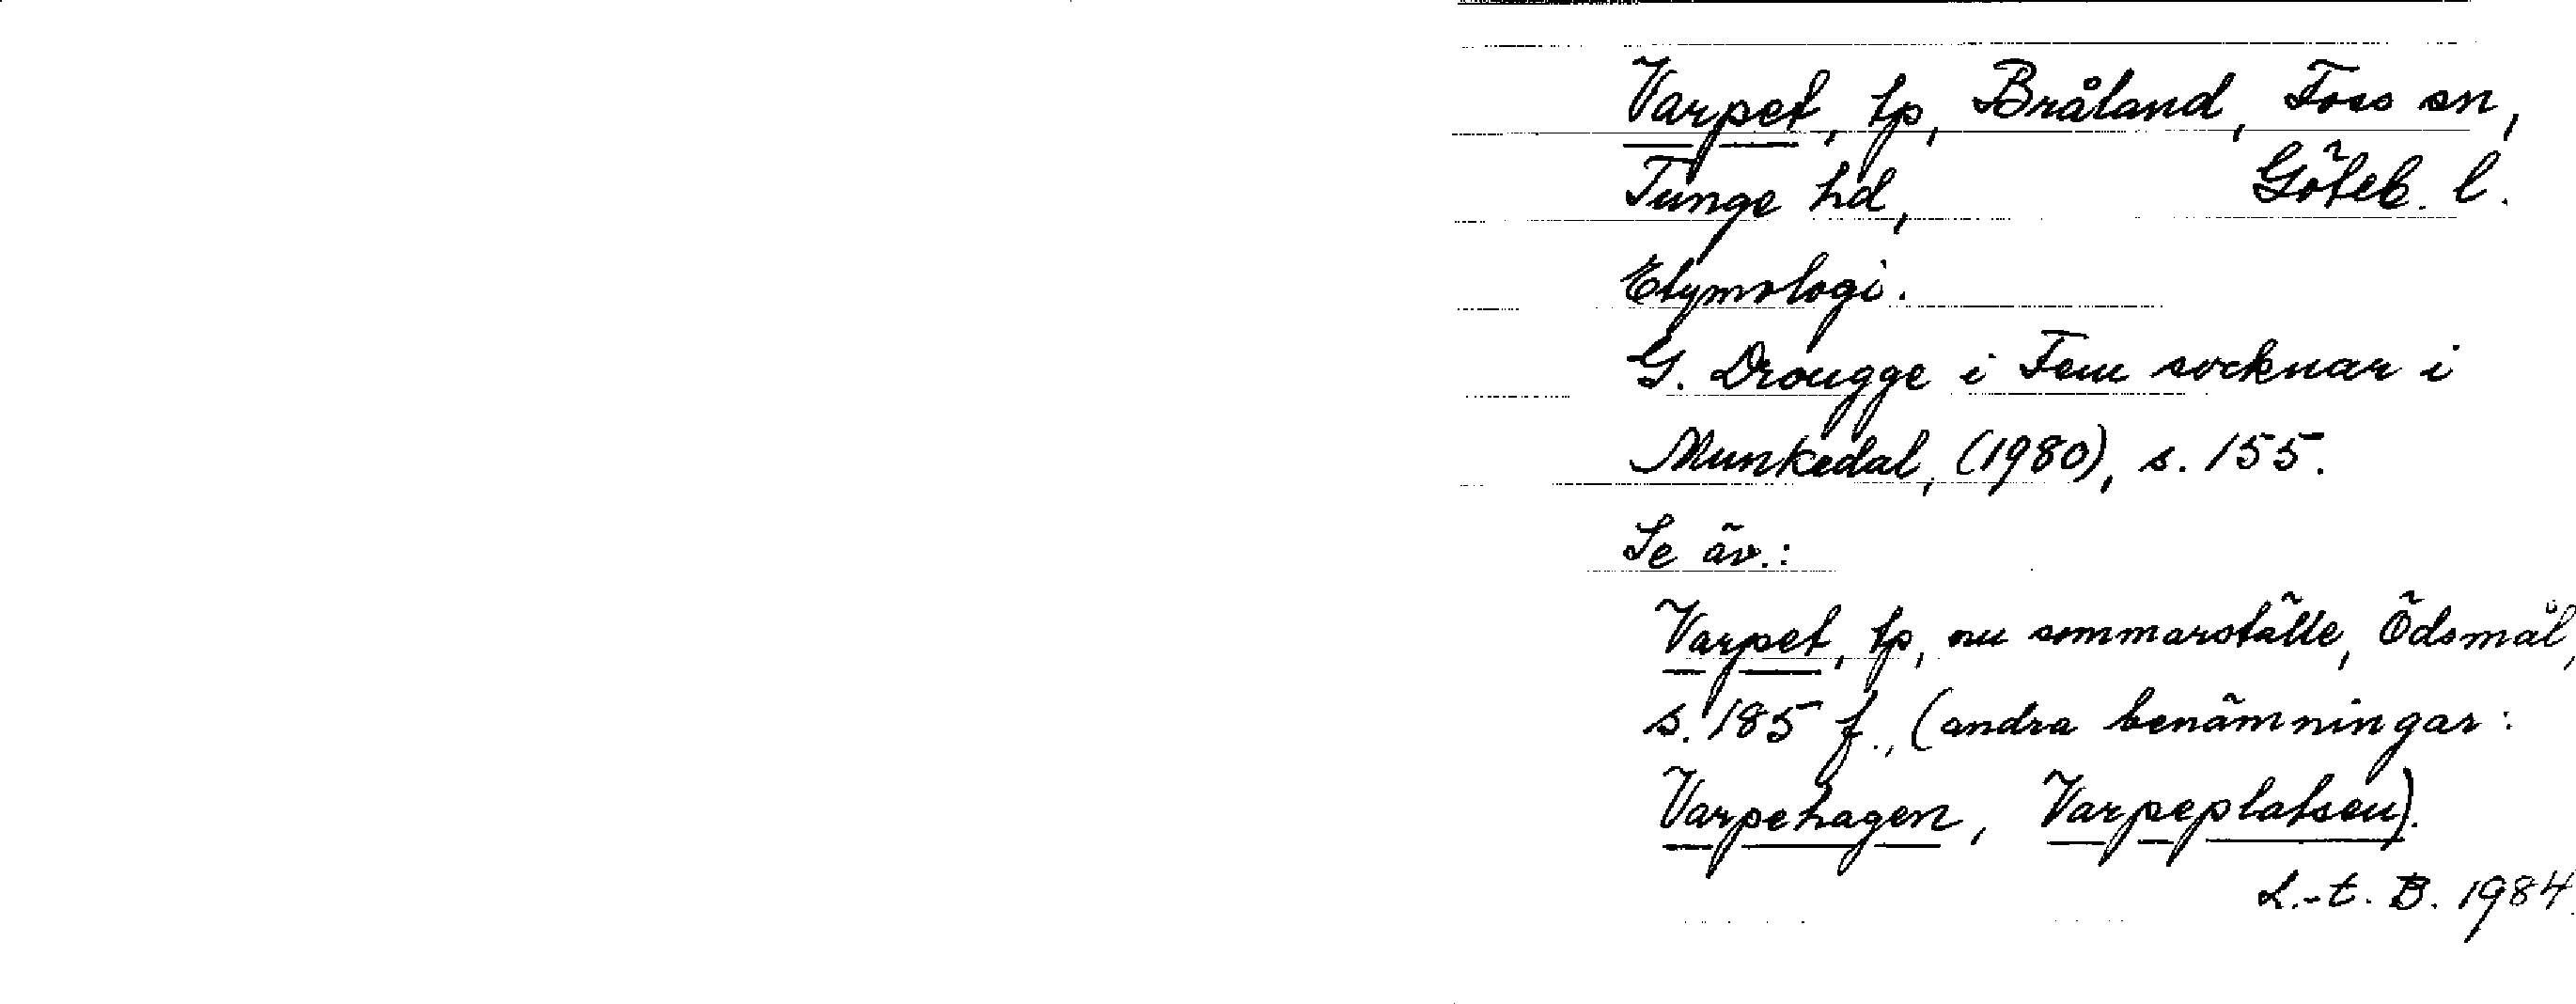 Varpet, tp, Bråland, Foss sn,
Tunge hd, Göteb. l.
Etymologi.
G. Drougge i Fem socknar i
Munkedal, (1980), s. 155.
Se äv.:
Varpet, tp, nu sommarställe, Ödsmål,
s. 185 f., (andra benämningar:
Varpehagen, Varpeplatsen).
L.-t. B. 1984.